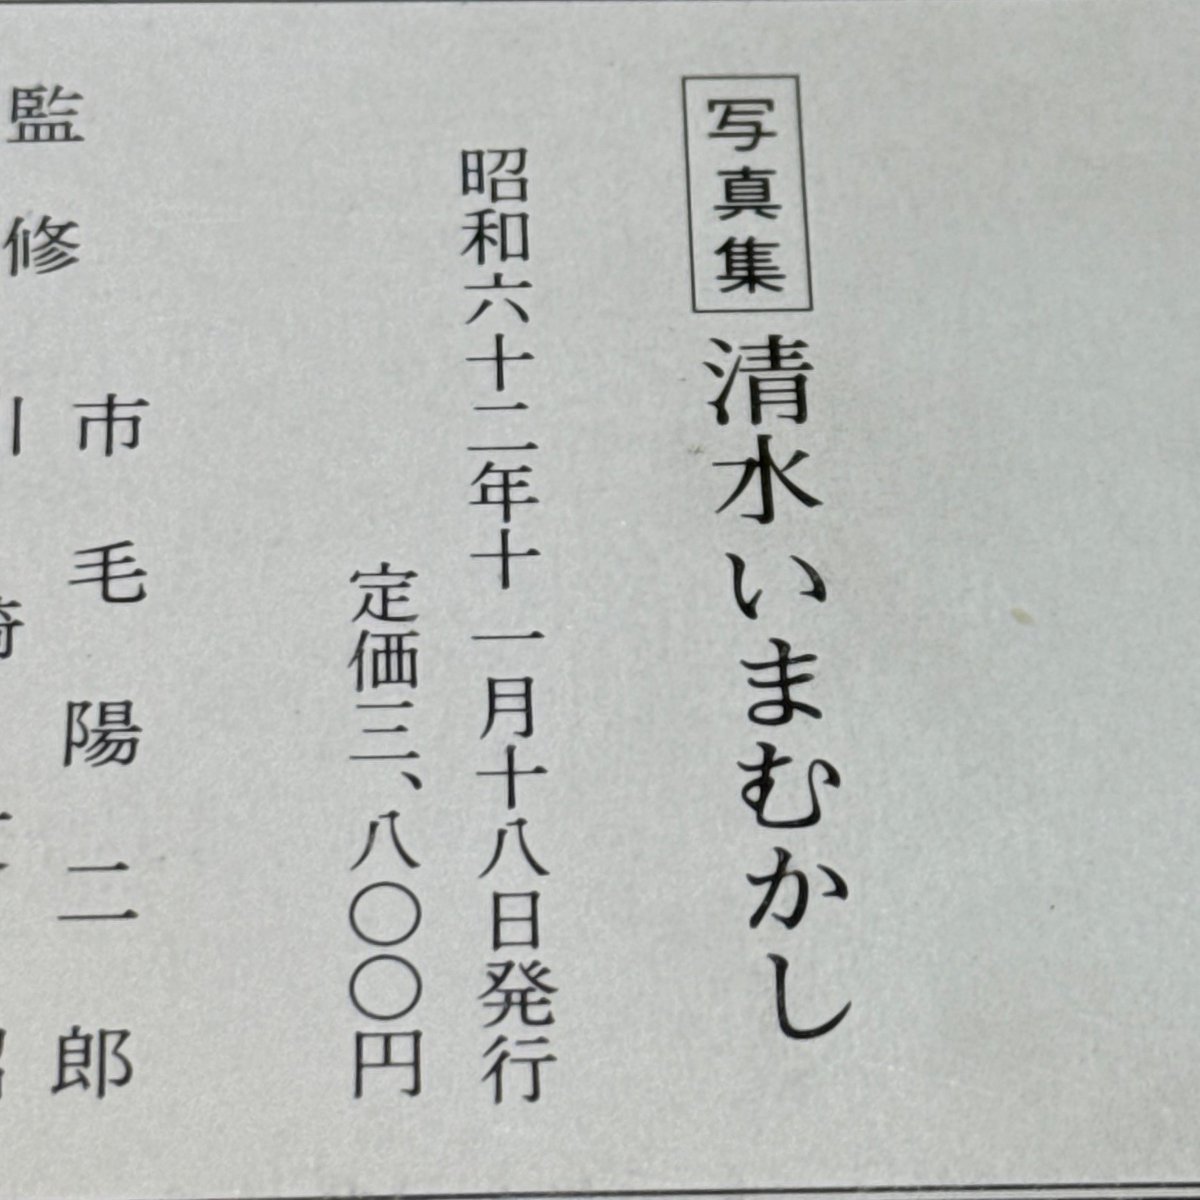 写真集 清水いまむかし
昭和六十二年十一月十八日発行
定価三、八〇〇円
監修 市毛陽二郎